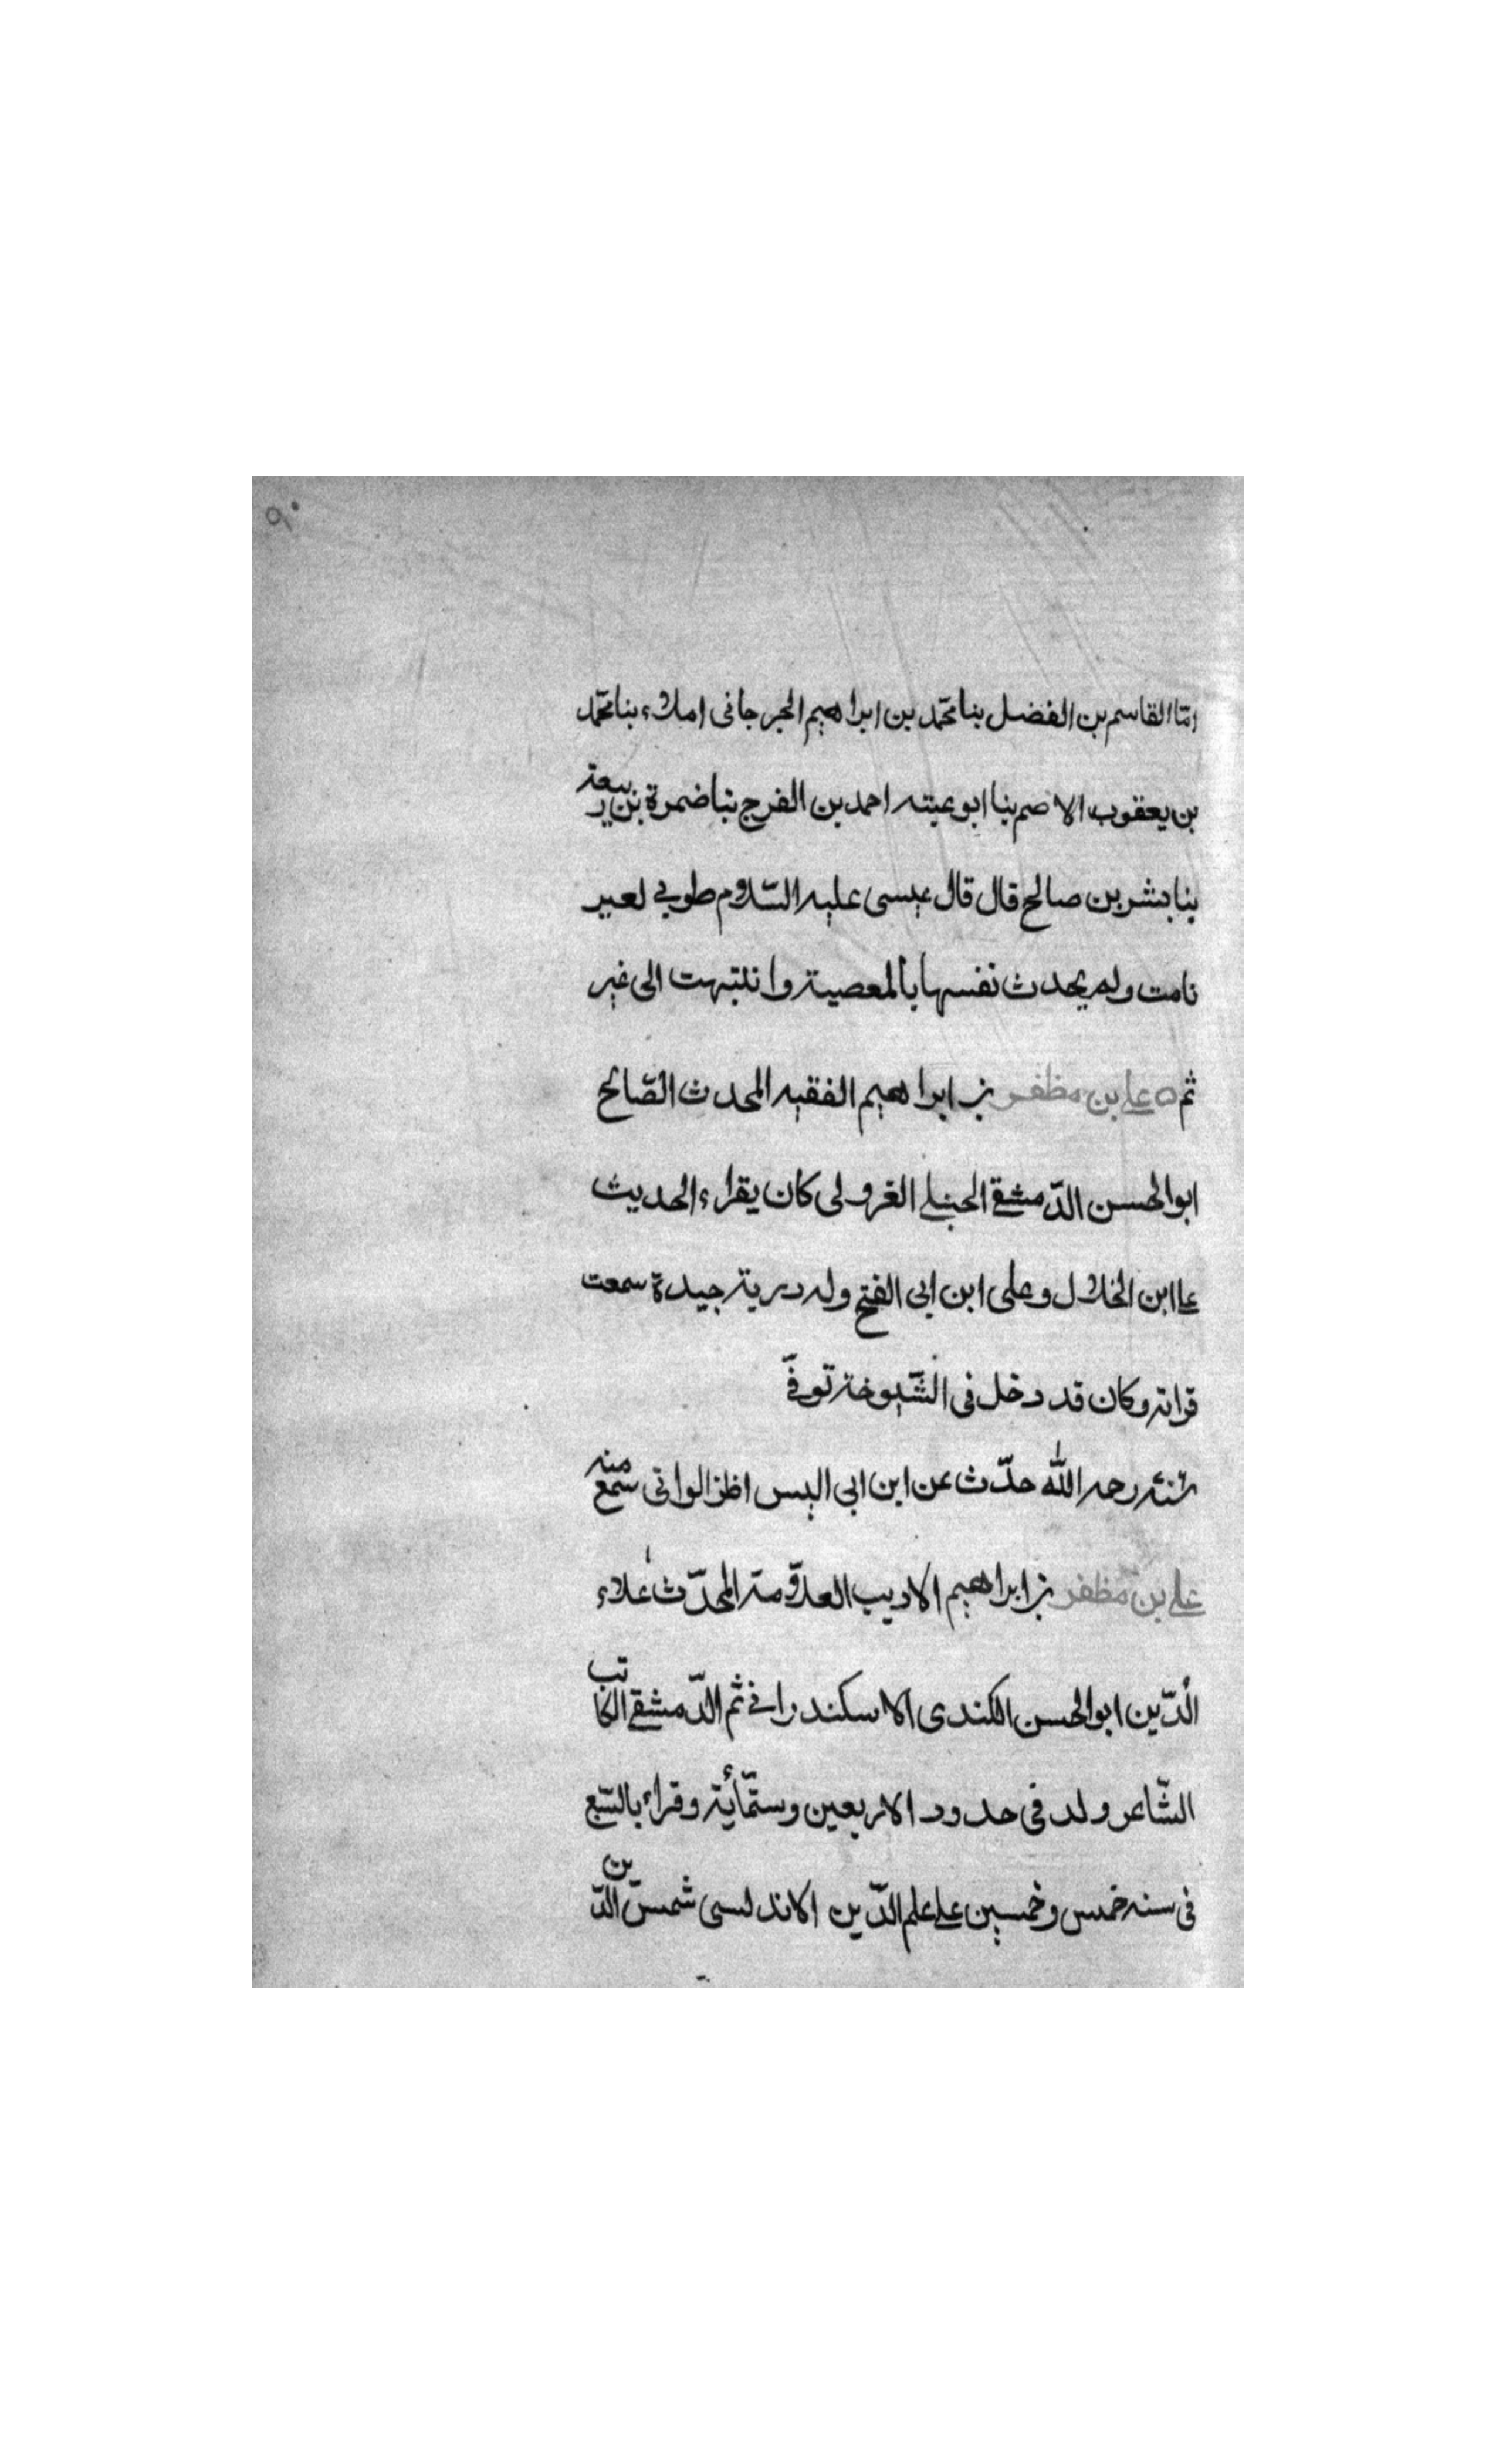 ٩٠
انا القاسم بن الفضل بنا محمّد بن ابراهيم الجرجانى املاء بنا محمّد
بن يعقوب الاصم بنا ابو عيتبه احمد بن الفرج بنا ضمرة بن ربيعة
بنا بشر بن صالح قال قال عيسى عليه السّلام طوبى لعير
نامت ولم يحدث نفسها بالمعصية وانتبهت الى غير
ثم ه على بن مظفر بن ابراهيم الفقيه المحدث الصّالح
ابو الحسن الدّمشقى الحنبلى الغرولى كان يقراء الحديث
على ابن الخلال وعلى ابن ابى الفتح وله دربة جيدة سمعت
قراته وكان قد دخل فى الشّيوخة توفّى
سنة رحمه الله حدّث عن ابن ابى اليسر اظن الوانى سمع منه
على بن مظفر بن ابراهيم الاديب العلّامة المحدّث علاء
الدّين ابو الحسن الكندى الاسكندرانى ثم الدّمشقى الكاتب
الشّاعر ولد فى حدود الاربعين وستّمأئة وقراء بالسّبع
فى سنة خمس وخمسين على علم الدّين الاندلسى شمس الدّين